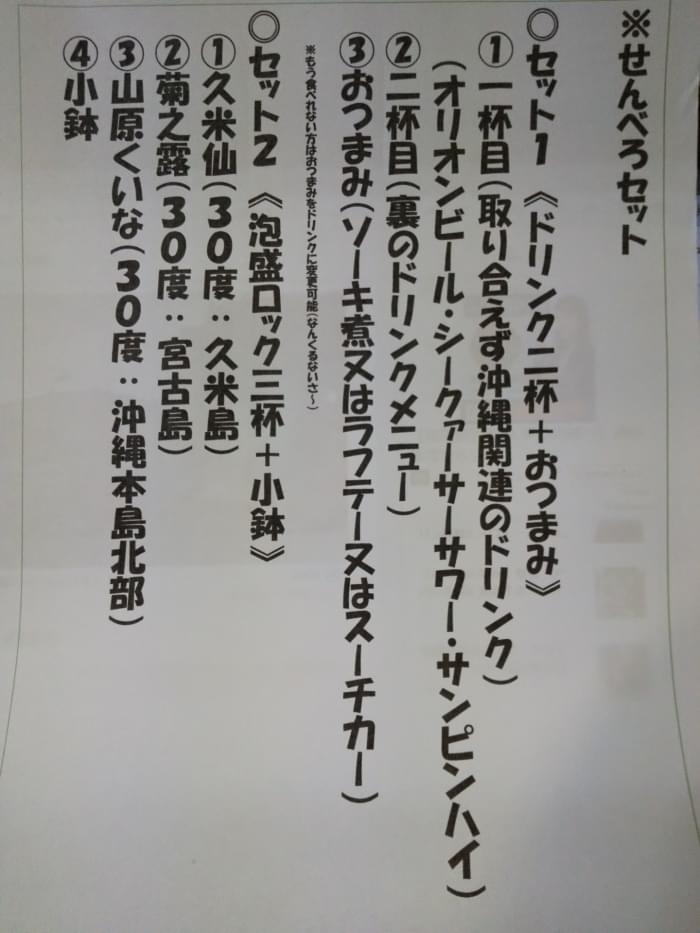 ※せんべろセット
○セット1《ドリンク二杯＋おつまみ》
①一杯目(取り合えず沖縄関連のドリンク)
(オリオンビール・シークァーサーサワー・サンピンハイ)
②二杯目(裏のドリンクメニュー)
③おつまみ(ソーキ煮又はラフテー又はスーチカー)
※もう食べれない方はおつまみをドリンクに変更可能(なんくるないさ～)
○セット2《泡盛ロック三杯＋小鉢》
①久米仙(30度：久米島)
②菊之露(30度：宮古島)
③山原くいな(30度：沖縄本島北部)
④小鉢